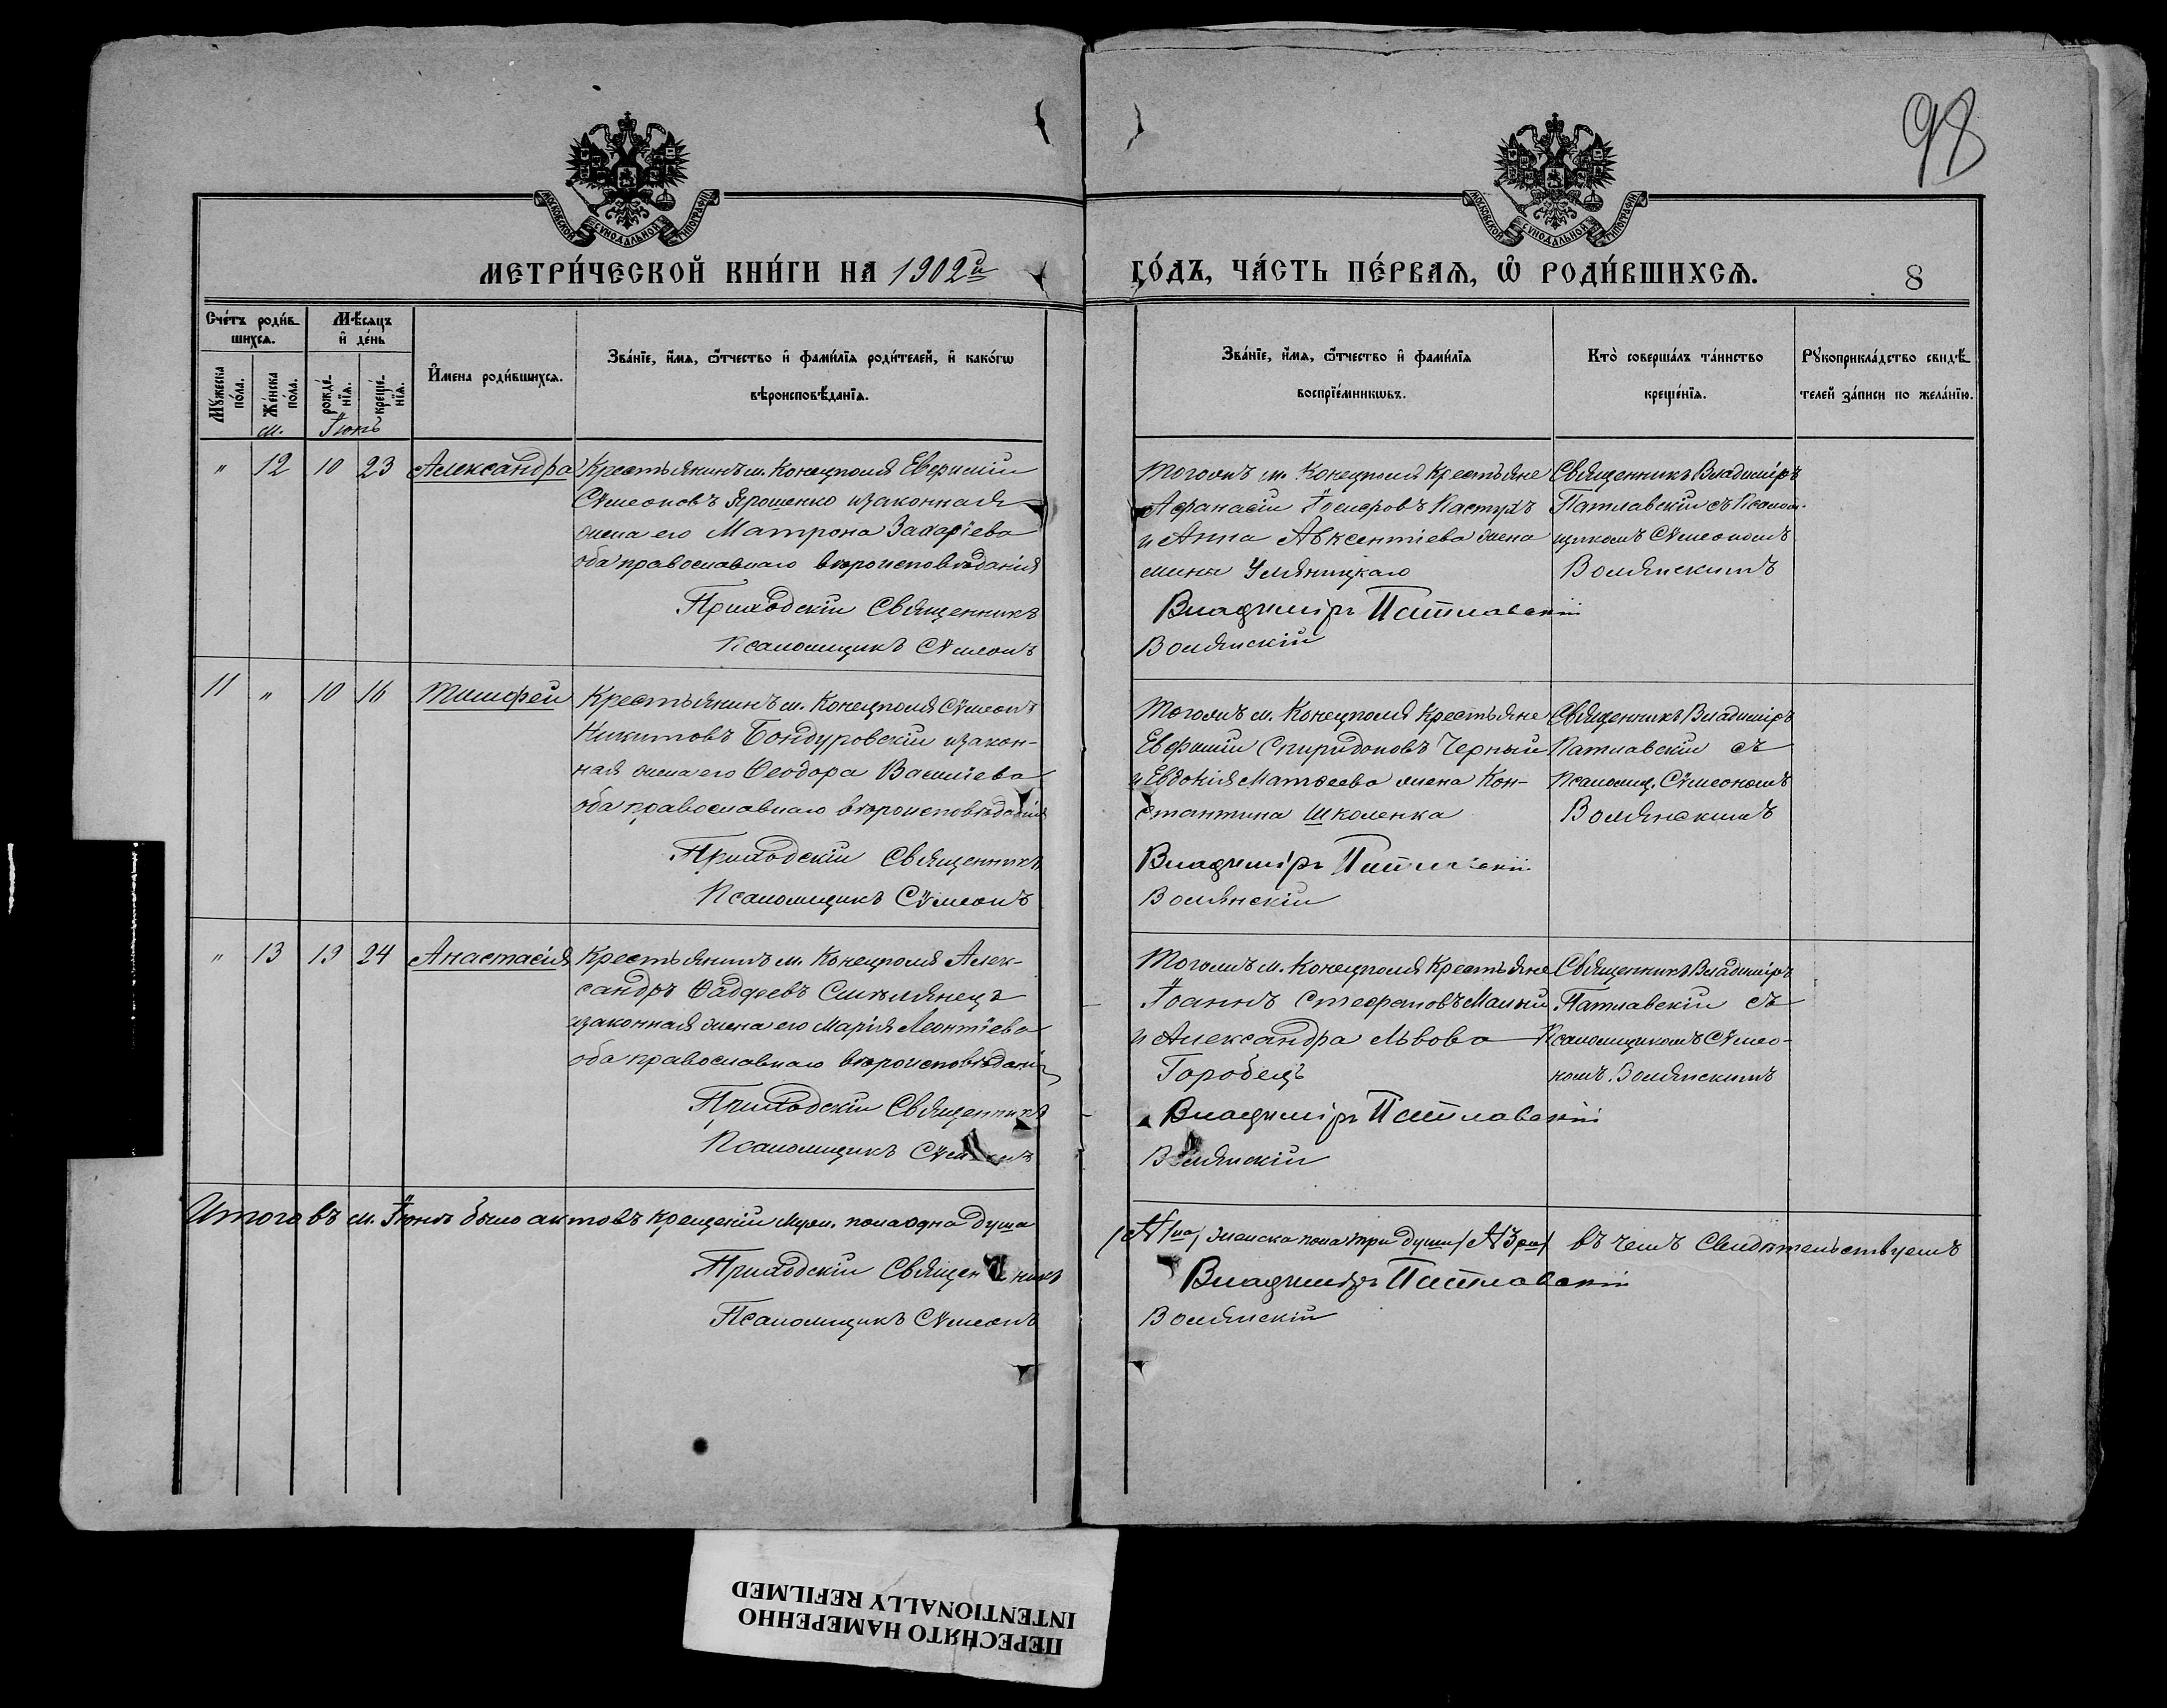 98
МОСКОВСКОЙ СУНОДАЛЬНОЙ ТИПОГРАФІИ
МОСКОВСКОЙ СУНОДАЛЬНОЙ ТИПОГРАФІИ
МЕТРИ́ЧЕСКОЙ КНИ́ГИ НА 1902й
ГО́ДЪ, ЧА́СТЬ ПЕ́РВАѦ, Ѽ РОДИ́ВШИХСѦ.
8
Сче́тъ роди́в-
шихсѧ.
Мѣ́сѧцъ
и҆ де́нь
Мꙋ́жеска по́ла.
Же́нска по́ла.
рожде́нїѧ.
креще́нїѧ.
И҆мена̀ роди́вшихсѧ.
Зва́нїе, и҆́мѧ, ѻ҆́тчество и҆ фами́лїѧ роди́телей, и҆ како́гѡ
вѣроисповѣ́данїѧ.
Зва́нїе, и҆́мѧ, ѻ҆́тчество и҆ фами́лїѧ
воспрїе́мникѡвъ.
Кто̀ соверша́лъ та́инство
креще́нїѧ.
Рꙋкоприкла́дство свидѣ́-
телей за́писи по жела́нїю.
м. Іюнь
" 12 10 23 Александра
Крестьянинъ м. Конецполя Евфимій
Сѵмеоновъ Ярошенко и законная
жена его Матрона Захаріева
оба православнаго вѣроисповѣданія
Приходскій Священникъ
Псаломщикъ Сѵмеонъ
Тогожъ м. Конецполя Крестьяне
Афанасій Пастухъ
и Анна Авксентіева жена
Владиміръ Патлавскій
Волянскій
Священникъ Владиміръ
Патлавскій съ Псалом-
щикомъ Сѵмеономъ
Волянскимъ
11 " 10 16 Тимофей
Крестьянинъ м. Конецполя Сѵмеонъ
Никитовъ Бондуровскій и закон-
ная жена его Ѳеодора Василіева
оба православнаго вѣроисповѣданія
Приходскій Священникъ
Псаломщикъ Сѵмеонъ
Тогожъ м. Конецполя Крестьяне
Евфимій Спиридоновъ Черный
и Евдокія Матѳеева жена Кон-
стантина Школенка
Владиміръ Патлавскій
Волянскій
Священникъ Владиміръ
Патлавскій съ
Псаломщ. Сѵмеономъ
Волянскимъ
" 13 19 24 Анастасія
Крестьянинъ м. Конецполя Алек-
сандръ Ѳаддеевъ Смилянецъ
и законная жена его Марія Леонтіева
оба православнаго вѣроисповѣданія
Приходскій Священникъ
Псаломщикъ Сѵмеонъ
Тогожъ м. Конецполя Крестьяне
Іоаннъ Стефановъ Малый
и Александра Львова
Горобецъ
Владиміръ Патлавскій
Волянскій
Священникъ Владиміръ
Патлавскій съ
Псаломщикомъ Сѵмео-
номъ Волянскимъ
Итого въ м. Іюнѣ было актовъ крещенія муж. пола одна душа
(№ 1на) женска пола три души (№ 3ри) въ чемъ Свидѣтельствуемъ
Приходскій Священникъ
Владиміръ Патлавскій
Псаломщикъ Сѵмеонъ
Волянскій
ПЕРЕСНЯТО НАМЕРЕННО
INTENTIONALLY REFILMED